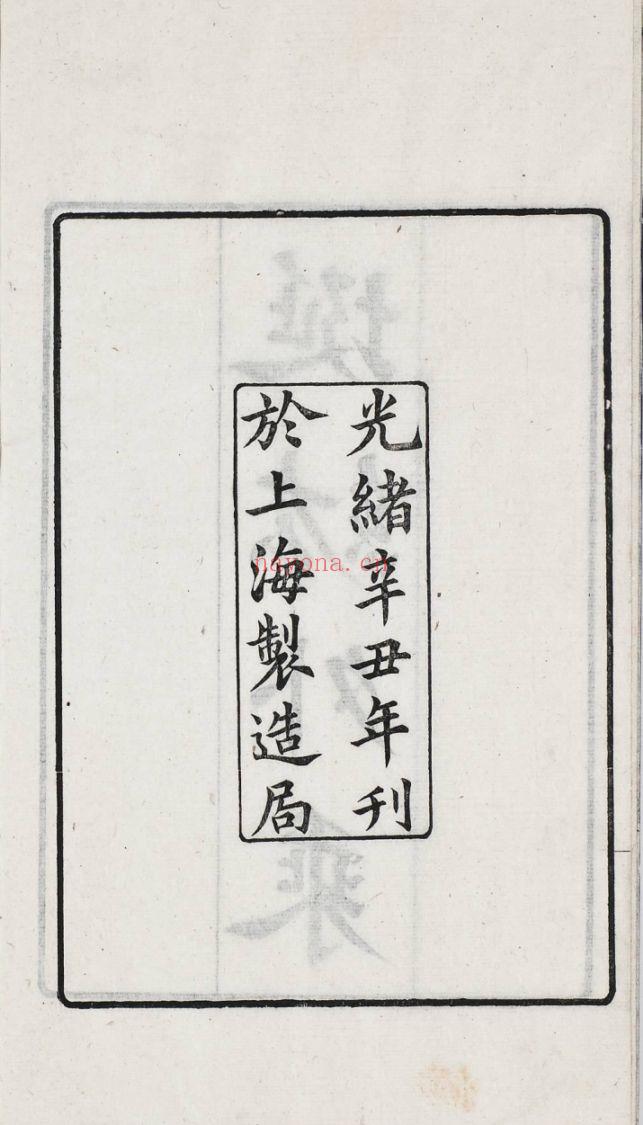 光緒辛丑年刊
於上海製造局
nayona.cn